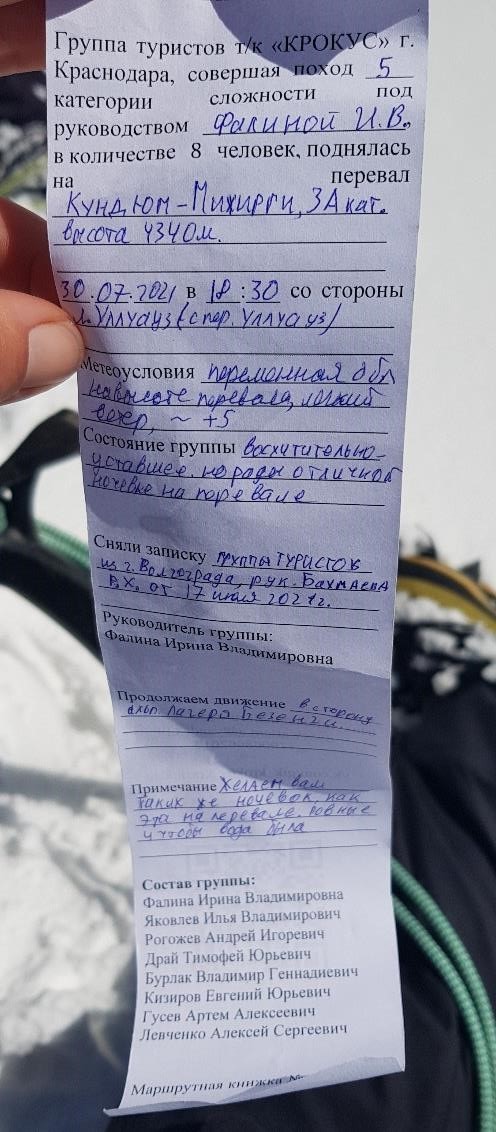 Группа туристов т/к «КРОКУС» г.
Краснодара, совершая поход 5
категории сложности под
руководством Фалиной И.В.,
в количестве 8 человек, поднялась
на перевал
Кундюм-Мижирги, 3А кат.
высота 4340м.
30.07.2021 в 18:30 со стороны
л. Уллуауз (с пер. Уллуауз)
Метеоусловия переменная обл
на высоте перевала, легкий
ветер, ~ +5
Состояние группы восхитительно-
уставшее, но рады отличной
ночевке на перевале
Сняли записку группы туристов
из г. Волгограда, рук. Бахтаева
В.Х. от 17 июля 2021г.
Руководитель группы:
Фалина Ирина Владимировна
Продолжаем движение в сторону
альп. лагеря Безенги.
Примечание Желаем вам
таких же ночевок, как
эта на перевале, ровные
и чтобы вода была
Состав группы:
Фалина Ирина Владимировна
Яковлев Илья Владимирович
Рогожев Андрей Игоревич
Драй Тимофей Юрьевич
Бурлак Владимир Геннадиевич
Кизиров Евгений Юрьевич
Гусев Артем Алексеевич
Левченко Алексей Сергеевич
Маршрутная книжка №